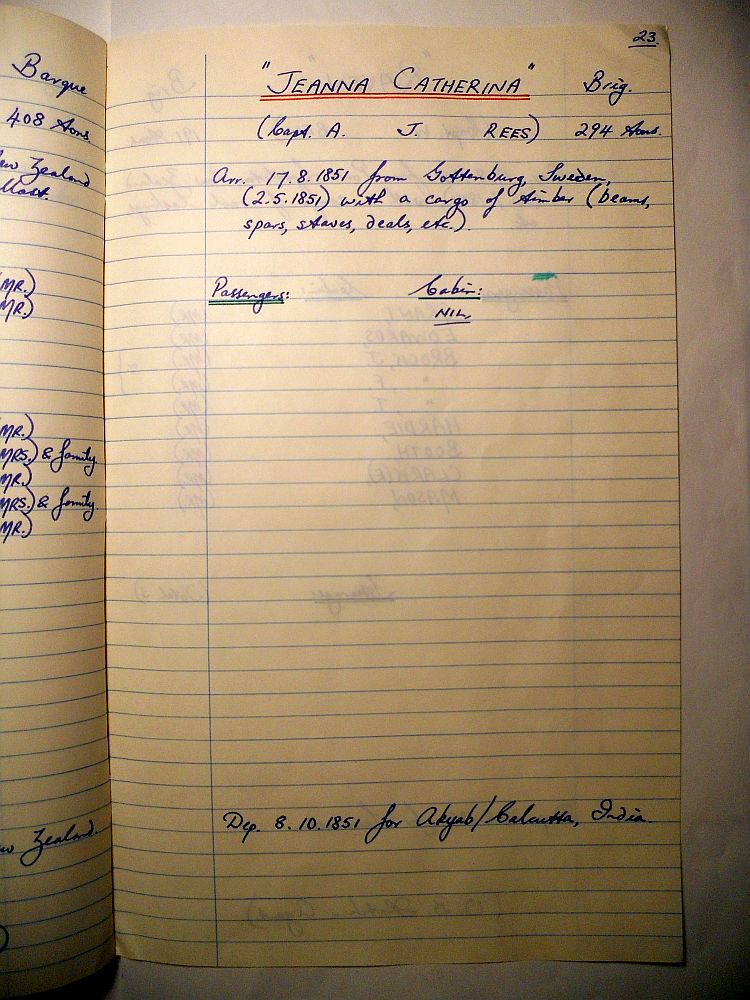 Barque
408 tons.
New Zealand
(MR.)
(MR.)
(MR.)
(MRS.) & family.
(MR.)
(MRS.) & family.
(MR.)
Zealand.
23.
"JEANNA CATHERINA" Brig.
(Capt. A. J. REES) 294 tons.
Arr. 17.8.1851 from Gottenburg, Sweden,
(2.5.1851) with a cargo of timber (beams,
spars, staves, deals, etc.).
Passengers: Cabin:
NIL.
Dep. 8.10.1851 for Akyab/Calcutta, India.